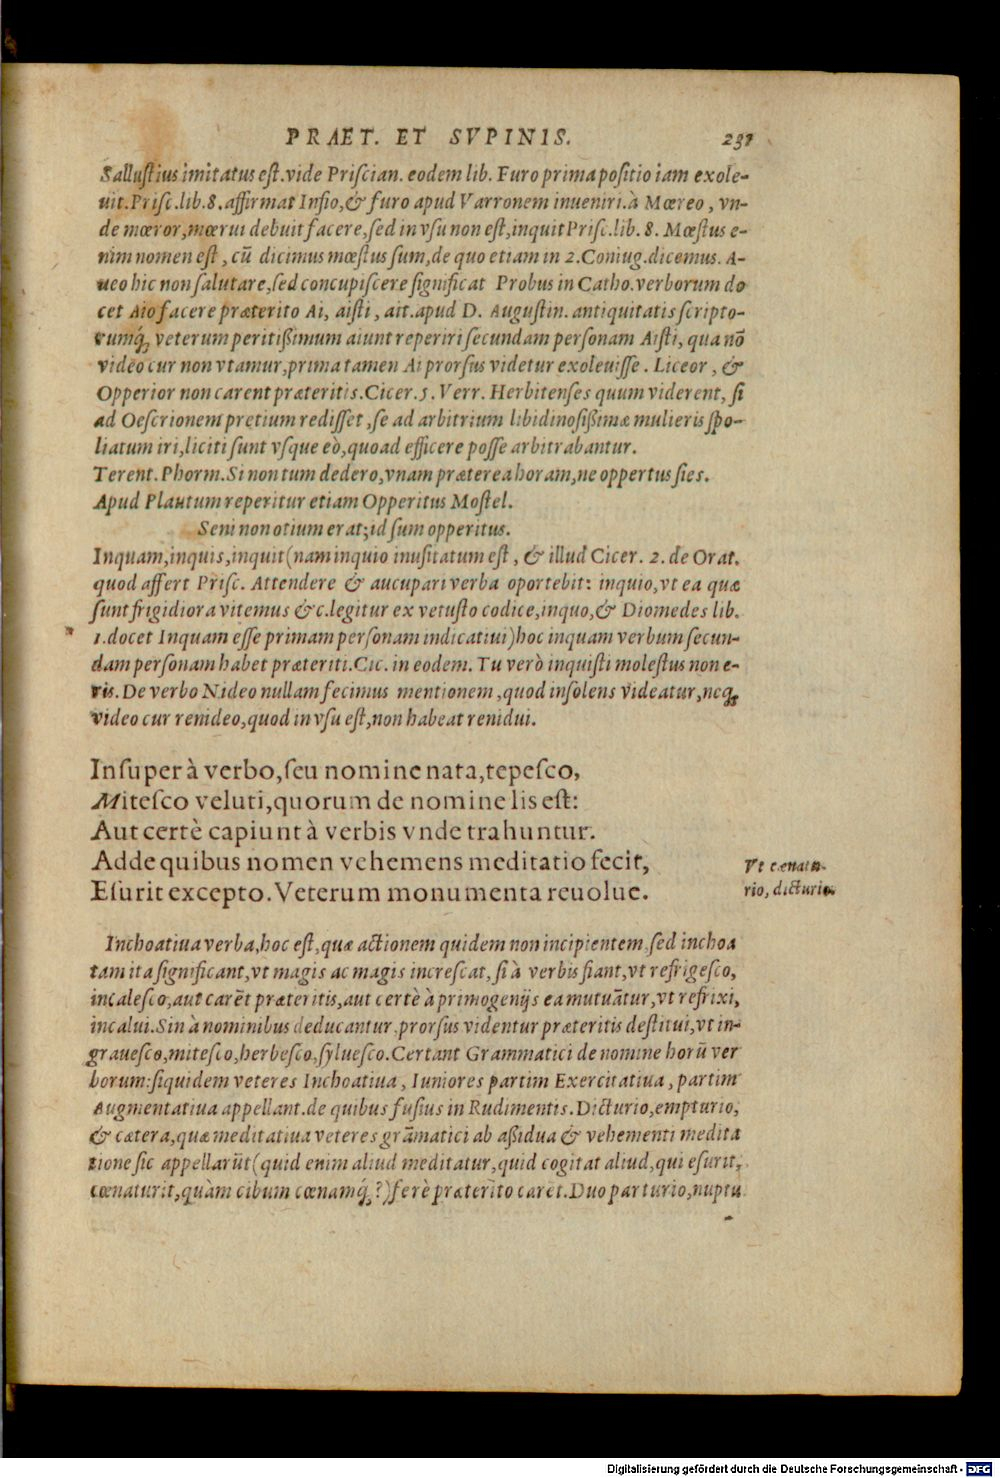 PRAET. ET SVPINIS. 231
Sallustius imitatus est.vide Priscian. eodem lib. Furo prima positio iam exole-
uit.Prisc.lib.8.affirmat Insio,& furo apud Varronem inueniri.à Mœreo, vn-
de mœror,mœrui debuit facere,sed in vsu non est,inquit Prisc.lib. 8. Mœstus e-
nim nomen est, cū dicimus mœstus sum,de quo etiam in 2.Coniug.dicemus. A-
ueo hic non salutare,sed concupiscere significat Probus in Catho.verborum do
cet Aio facere præterito Ai, aisti, ait.apud D. Augustin. antiquitatis scripto-
rumq́; veterum peritißimum aiunt reperiri secundam personam Aisti, qua nō
video cur non vtamur,prima tamen Ai prorsus videtur exoleuisse. Liceor, &
Opperior non carent præteritis.Cicer.5. Verr. Herbitenses quum viderent, si
ad Oescrionem pretium redisset,se ad arbitrium libidinosißimæ mulieris spo-
liatum iri,liciti sunt vsque eò,quoad efficere posse arbitrabantur.
Terent.Phorm.Si non tum dedero,vnam præterea horam,ne oppertus sies.
Apud Plautum reperitur etiam Opperitus Mostel.
Seni non otium erat;id sum opperitus.
Inquam,inquis,inquit(nam inquio inusitatum est, & illud Cicer. 2. de Orat.
quod affert Prisc. Attendere & aucupari verba oportebit: inquio,vt ea quæ
sunt frigidiora vitemus &c.legitur ex vetusto codice,inquo,& Diomedes lib.
1.docet Inquam esse primam personam indicatiui)hoc inquam verbum secun-
dam personam habet præteriti.Cic. in eodem. Tu verò inquisti molestus non e-
ris. De verbo Nideo nullam fecimus mentionem,quod insolens videatur,neq;
video cur renideo,quod in vsu est,non habeat renidui.
Insuper à verbo,seu nomine nata,tepesco,
Mitesco veluti,quorum de nomine lis est:
Aut certè capiunt à verbis vnde trahuntur.
Adde quibus nomen vehemens meditatio fecit,
Esurit excepto. Veterum monumenta reuolue.
Vt cænatu-
rio, dicturio.
Inchoatiua verba,hoc est,quæ actionem quidem non incipientem,sed inchoa
tam ita significant,vt magis ac magis increscat, si à verbis fiant,vt refrigesco,
incalesco,aut carēt præteritis,aut certè à primogenijs ea mutuātur,vt refrixi,
incalui.Sin à nominibus deducantur,prorsus videntur præteritis destitui,vt in-
grauesco,mitesco,herbesco,syluesco.Certant Grammatici de nomine horū ver
borum:siquidem veteres Inchoatiua, Iuniores partim Exercitatiua, partim
Augmentatiua appellant.de quibus fusius in Rudimentis.Dicturio,empturio,
& cætera,quæ meditatiua veteres grāmatici ab aßidua & vehementi medita
tione sic appellarūt(quid enim aliud meditatur,quid cogitat aliud,qui esurit,
cœnaturit,quàm cibum cœnamq́;?)ferè præterito caret.Duo parturio,nuptu
Digitalisierung gefördert durch die Deutsche Forschungsgemeinschaft - DFG